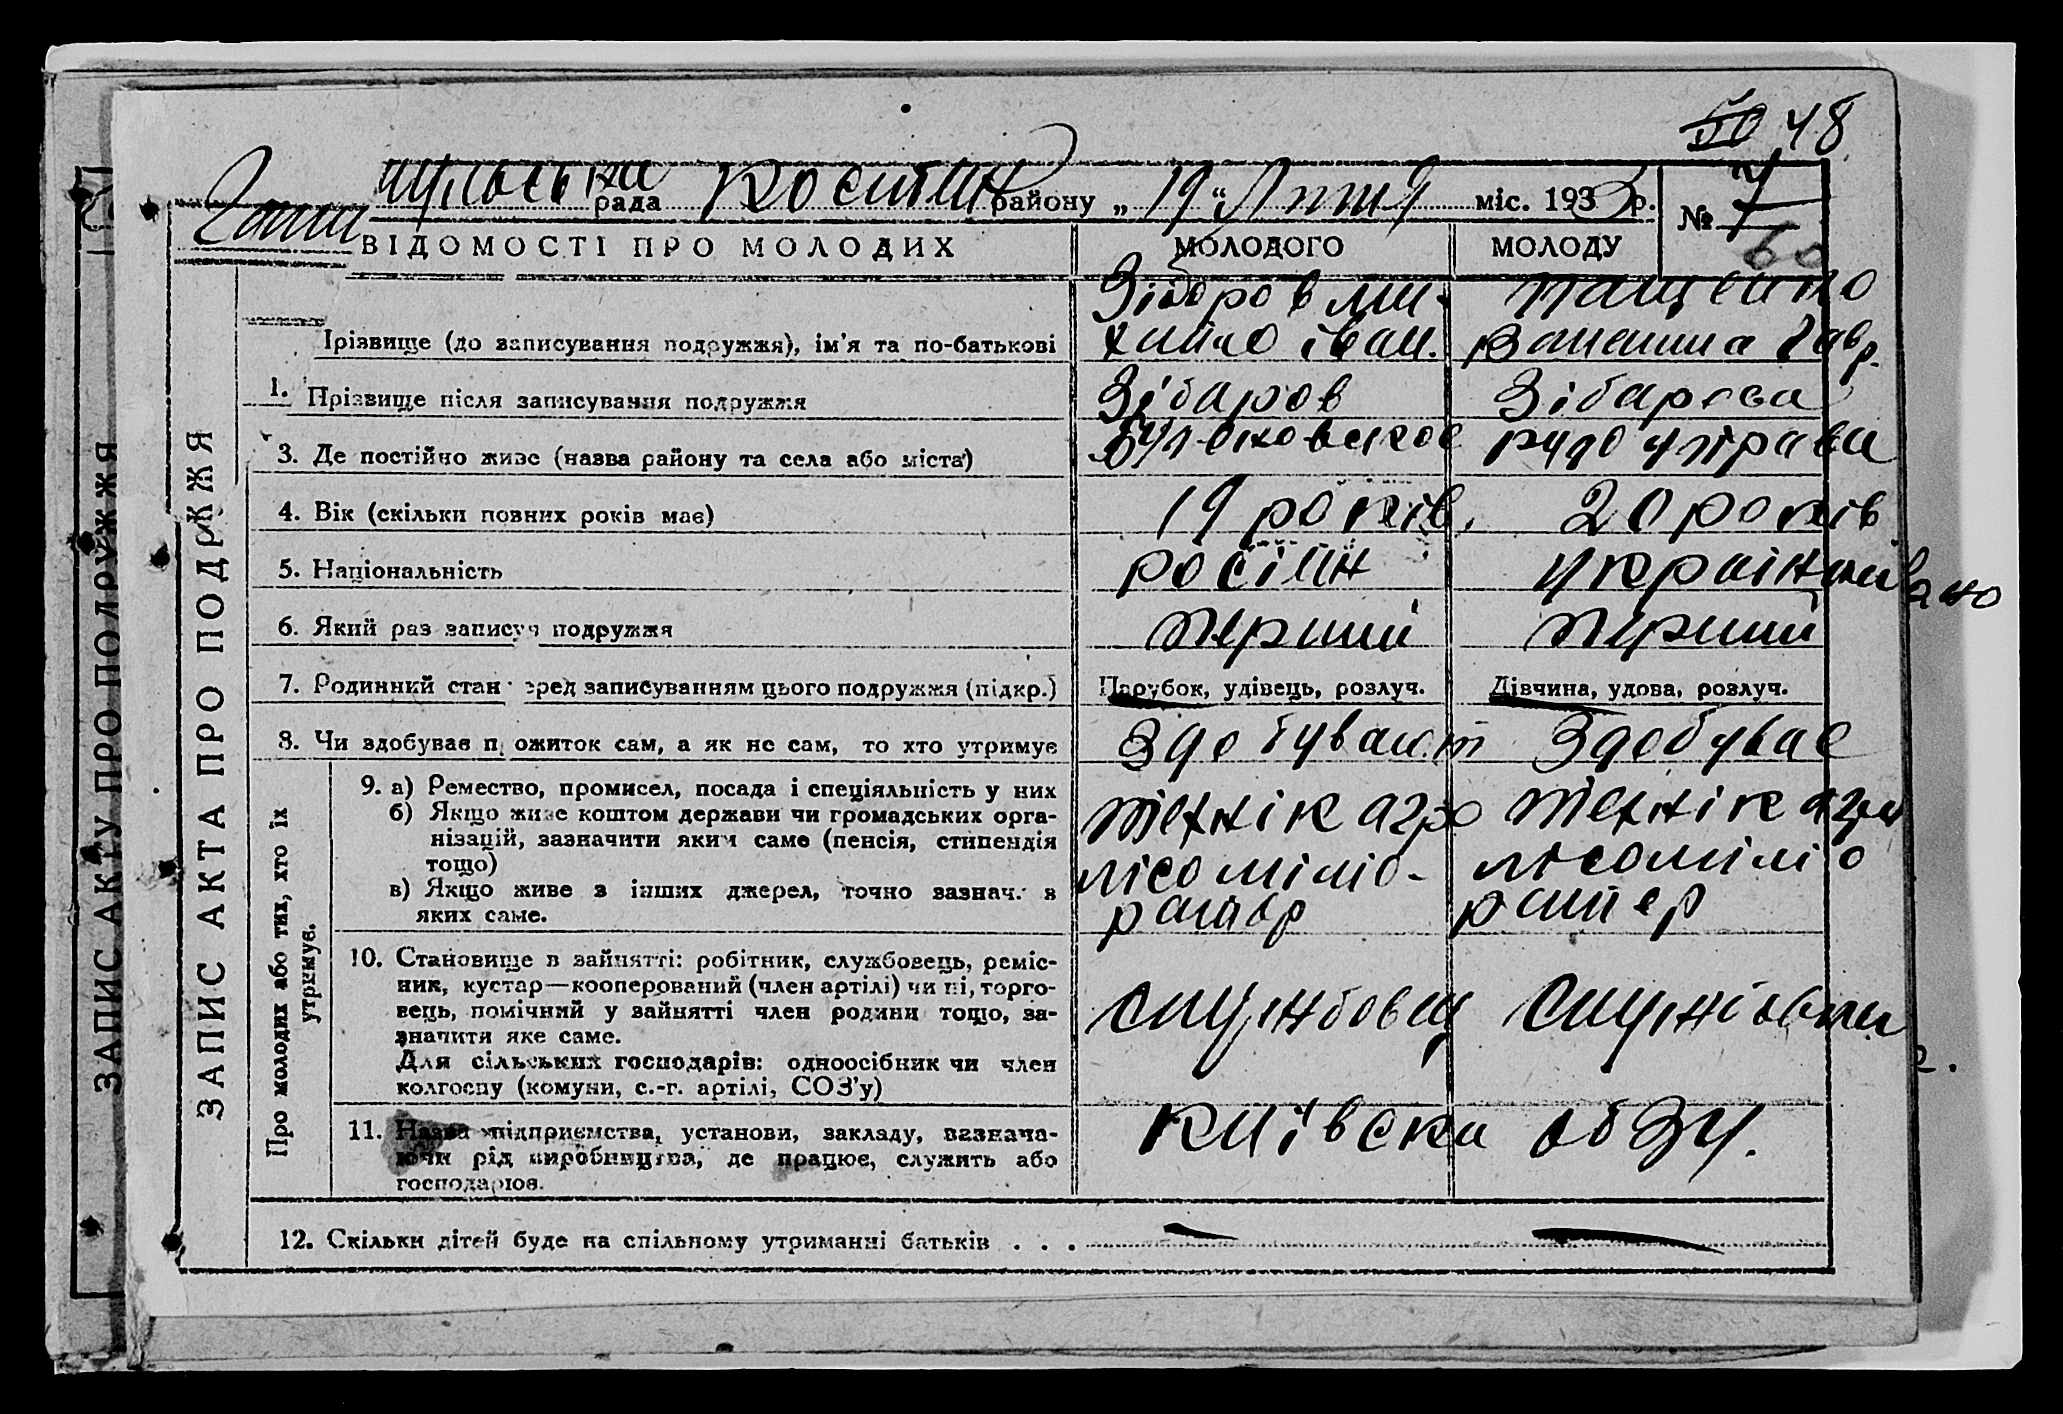 50 48
сільська рада району „19“ Лютня міс. 1933 р. № 7
60
ВІДОМОСТІ ПРО МОЛОДИХ МОЛОДОГО МОЛОДУ
ЗАПИС АКТУ ПРО ПОДРУЖЖЯ
ЗАПИС АКТА ПРО ПОДРЖЖЯ
Прізвище (до записування подружжя), ім'я та по-батькові
Зібаров Ми-
хайло Іван.
Пащенко
Гавр.
1. Прізвище після записування подружжя Зібаров Зібарова
3. Де постійно живе (назва району та села або міста)
4. Вік (скільки повних років має) 19 років. 20 років
5. Національність росіян українка
6. Який раз записує подружжя перший перший
7. Родинний стан перед записуванням цього подружжя (підкр.) Парубок, удівець, розлуч. Дівчина, удова, розлуч.
8. Чи здобуває прожиток сам, а як не сам, то хто утримує Здобуваєт Здобуває
Про молодих або тих, хто їх
утримує.
9. а) Ремество, промисел, посада і спеціяльність у них
б) Якщо живе коштом держави чи громадських орга-
нізацій, зазначити яким саме (пенсія, стипендія
тощо)
в) Якщо живе з інших джерел, точно зазнач. з
яких саме.
технік агро
лісоміліо-
ратор
технік агро
лісоміліо
ратер
10. Становище в зайнятті: робітник, службовець, реміс-
ник, кустар—кооперований (член артілі) чи ні, торго-
вець, помічний у зайнятті член родини тощо, за-
значити яке саме.
Для сільських господарів: одноосібник чи член
колгоспу (комуни, с.-г. артілі, СОЗ'у)
службовец службовка
11. Назва підприємства, установи, закладу, зазнача-
ючи рід виробництва, де працює, служить або
господарює.
Київска обЗУ.
12. Скільки дітей буде на спільному утриманні батьків . . . — —